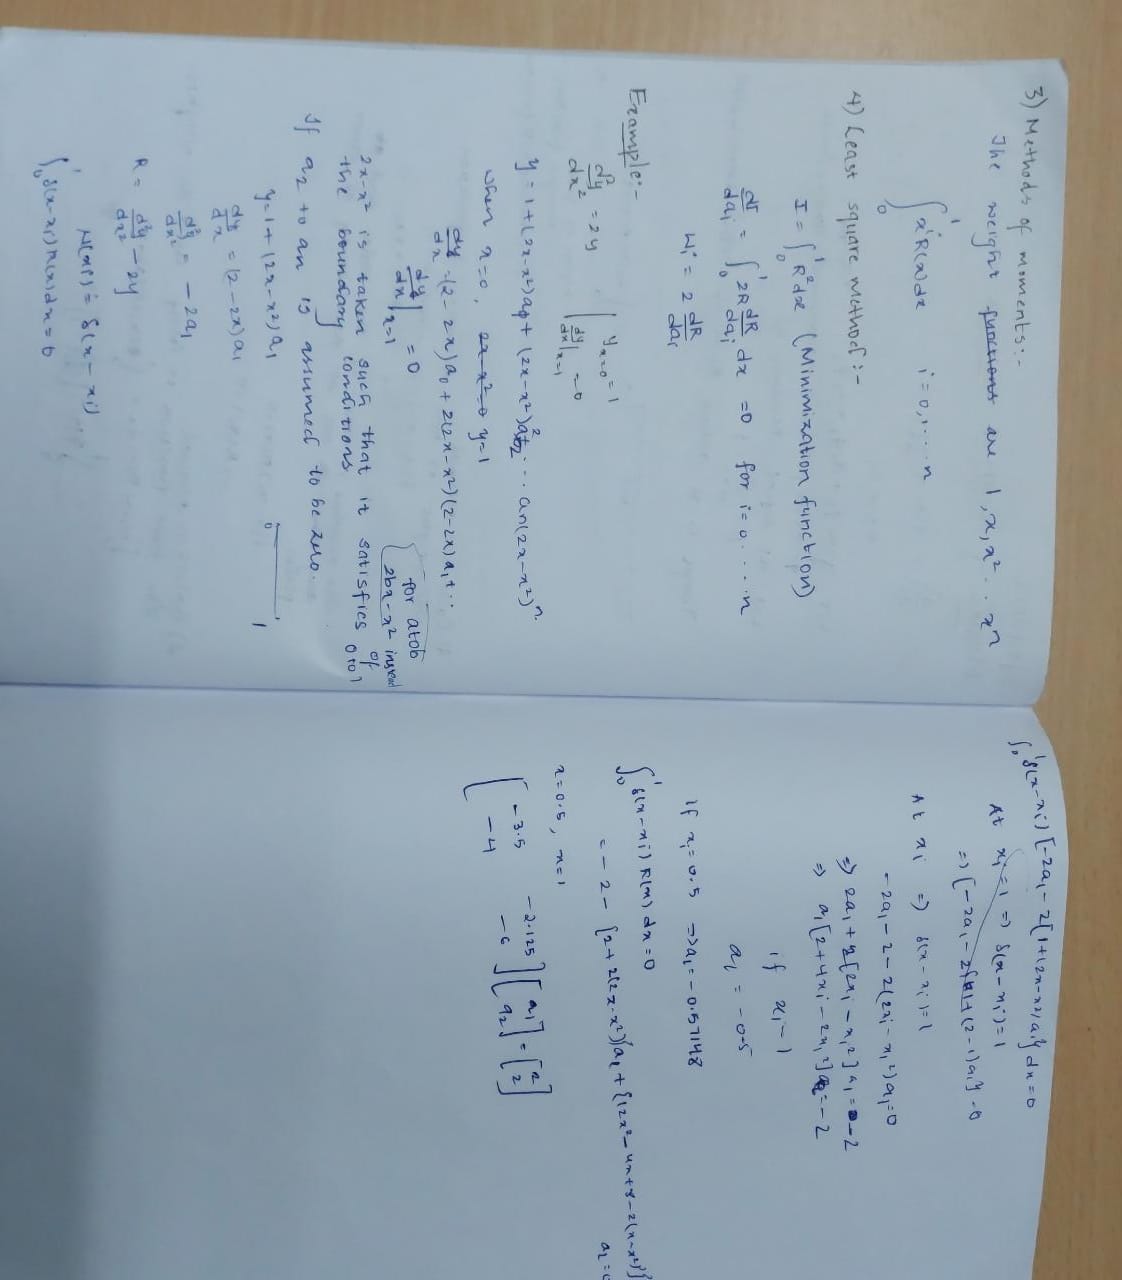 3) Methods of moments:-
The weight functions are 1, x, x² . . xⁿ
∫₀¹ xⁱR(x)dx i=0,.... n
4) Least square method:-
I = ∫₀¹ R²dx (Minimization function)
dI/daᵢ = ∫₀¹ 2R dR/daᵢ dx = 0 for i=0....n
Wᵢ = 2 dR/daᵢ
Example:-
d²y/dx² = 2y | yₓ₌₀ = 1
dy/dx|ₓ₌₁ = 0
y = 1+(2x-x²)a₁+(2x-x²)²a₂... aₙ(2x-x²)ⁿ
when x=0, 2x-x²=0 y=1
dy/dx = (2-2x)a₀+2(2x-x²)(2-2x)a₁+..
dy/dx|ₓ₌₁ = 0
for a to b
2bx-x² instead
of
0 to 1
2x-x² is taken such that it satisfies
the boundary conditions
If a₂ to aₙ is assumed to be zero.
y=1+(2x-x²)a₁
0 1
dy/dx = (2-2x)a₁
d²y/dx² = -2a₁
R = d²y/dx² - 2y
W(x) = δ(x-xᵢ)
∫₀¹ δ(x-xᵢ)R(x)dx=0
∫₀¹ δ(x-xᵢ)[-2a₁-2{1+(2x-x²)a₁}] dx=0
At xᵢ=1 ⇒ δ(x-xᵢ)=1
At xᵢ ⇒ δ(x-xᵢ)=1
-2a₁-2-2(2xᵢ-xᵢ²)a₁=0
⇒ 2a₁+2[2xᵢ-xᵢ²]a₁=-2
⇒ a₁[2+4xᵢ-2xᵢ²]=-2
if xᵢ-1
a₁ = -0.5
If xᵢ=0.5 ⇒a₁=-0.57148
∫₀¹ δ(x-xᵢ)R(x)dx=0
= -2-{2+2(2x-x²)}a₁+{12x²
x=0.5, x=1
[-3.5 -2.125] [a₁] = [2]
[-4 -6] [a₂] [2]